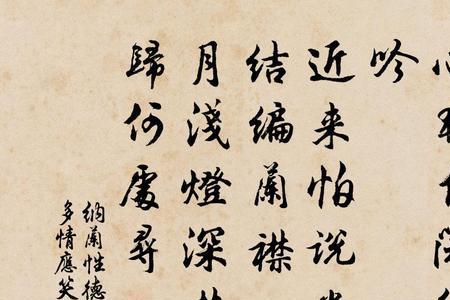 吟
近来怕說
結編蘭襟
月淺燈深
歸何處尋
納蘭性德
多情應笑